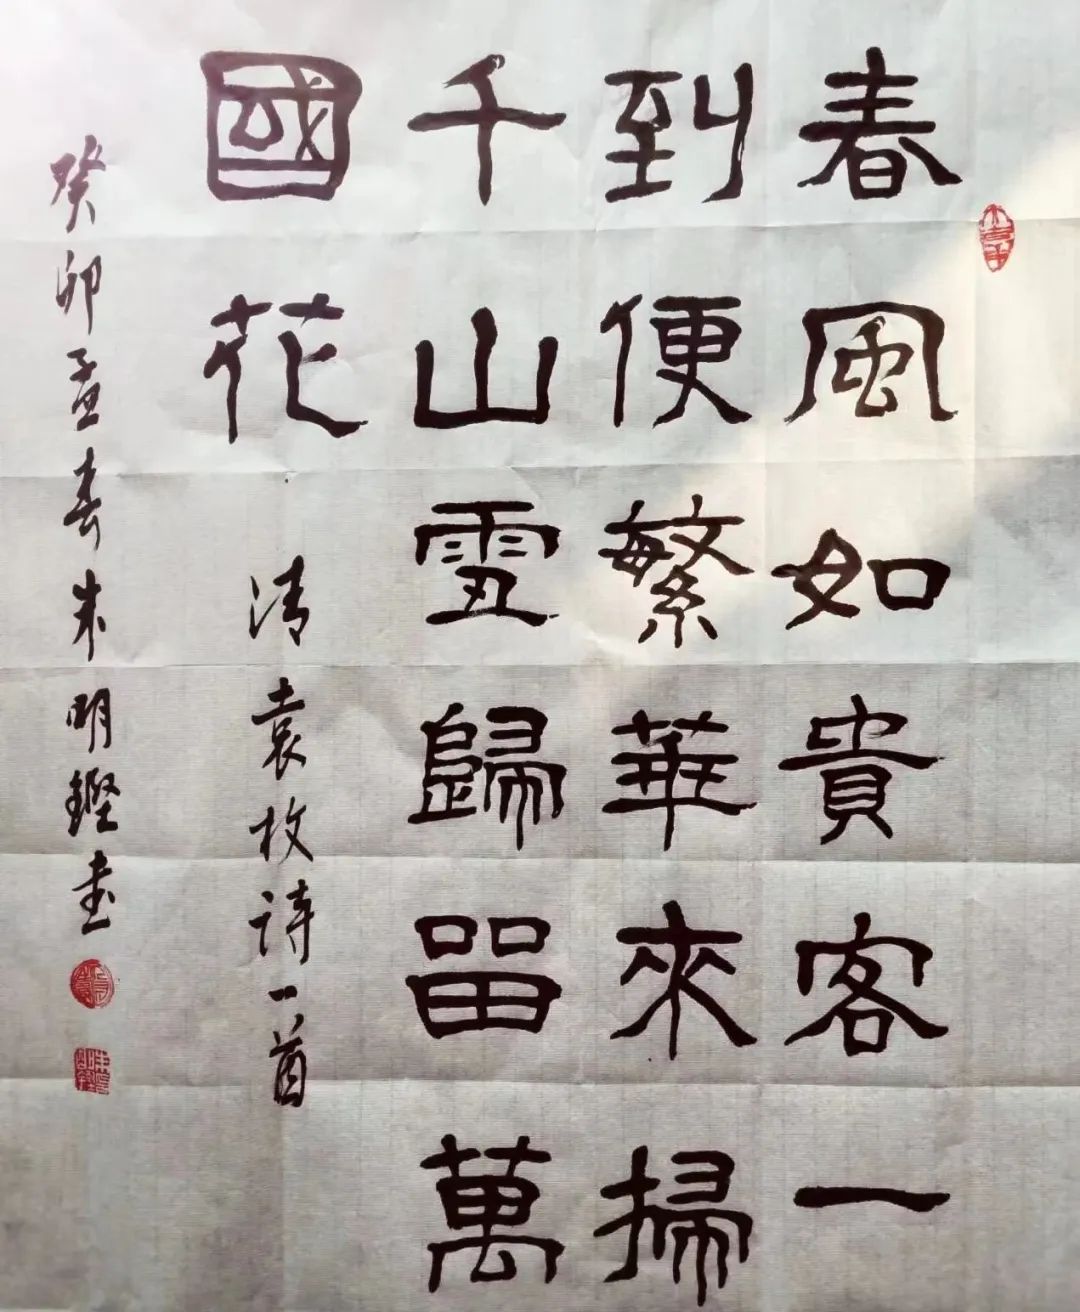 春風如貴客一
到便繁華來掃
千山雪歸留萬
國花
清袁枚詩一首
癸卯孟春朱明鏗書